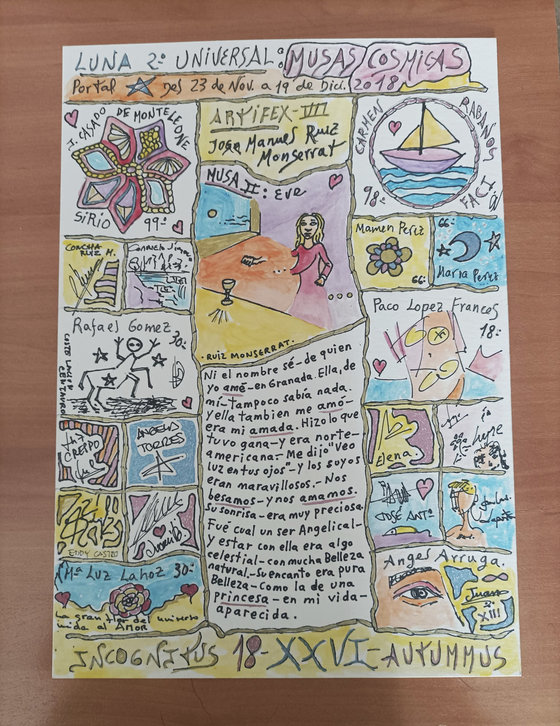 LUNA 2º UNIVERSAL a o: MUSAS COSMICAS
Portal Des 23 de Nov. a 19 de Dic. 2018
J. CASADO DE MONTELEONE
SIRIO 99º
ARTIFEX-VIII
Jose Manuel Ruiz
Monserrat
CARMEN RABANOS FACI
98º
MUSA II: Eve
CONCHA
RUIZ M.
Mamen Perez
66:
66:
Maria Perez
RUIZ MONSERRAT.
Rafael Gomez 30:
CENTAURO
Paco Lopez Frances
18:
Ni el nombre sé-de quien
yo amé-en Granada. Ella, de
mí-tampoco sabía nada.
y ella tambien me amó-
era mi amada. Hizo lo que
tuvo gana-y era norte-
americana.-Me dijo "Veo
luz en tus ojos"-y los suyos
eran maravillosos.-Nos
besamos-y nos amamos.
su sonrisa-era muy preciosa.
Fué cual un ser Angelical-
y estar con ella era algo
celestial-con mucha Belleza
natural.-Su encanto era pura
Belleza-Como la de una
princesa-en mi vida-
aparecida.
CRESPO
ANGELA
TORRES
Elena.
EDDY CASTRO
JOSÉ ANTº
Mª Luz Lahoz 30:
La gran flor del universo
vida al AMOR
Angel Arruga.
Juan
XIII
INCOGNITUS 18-XXVI-AUTUMMUS